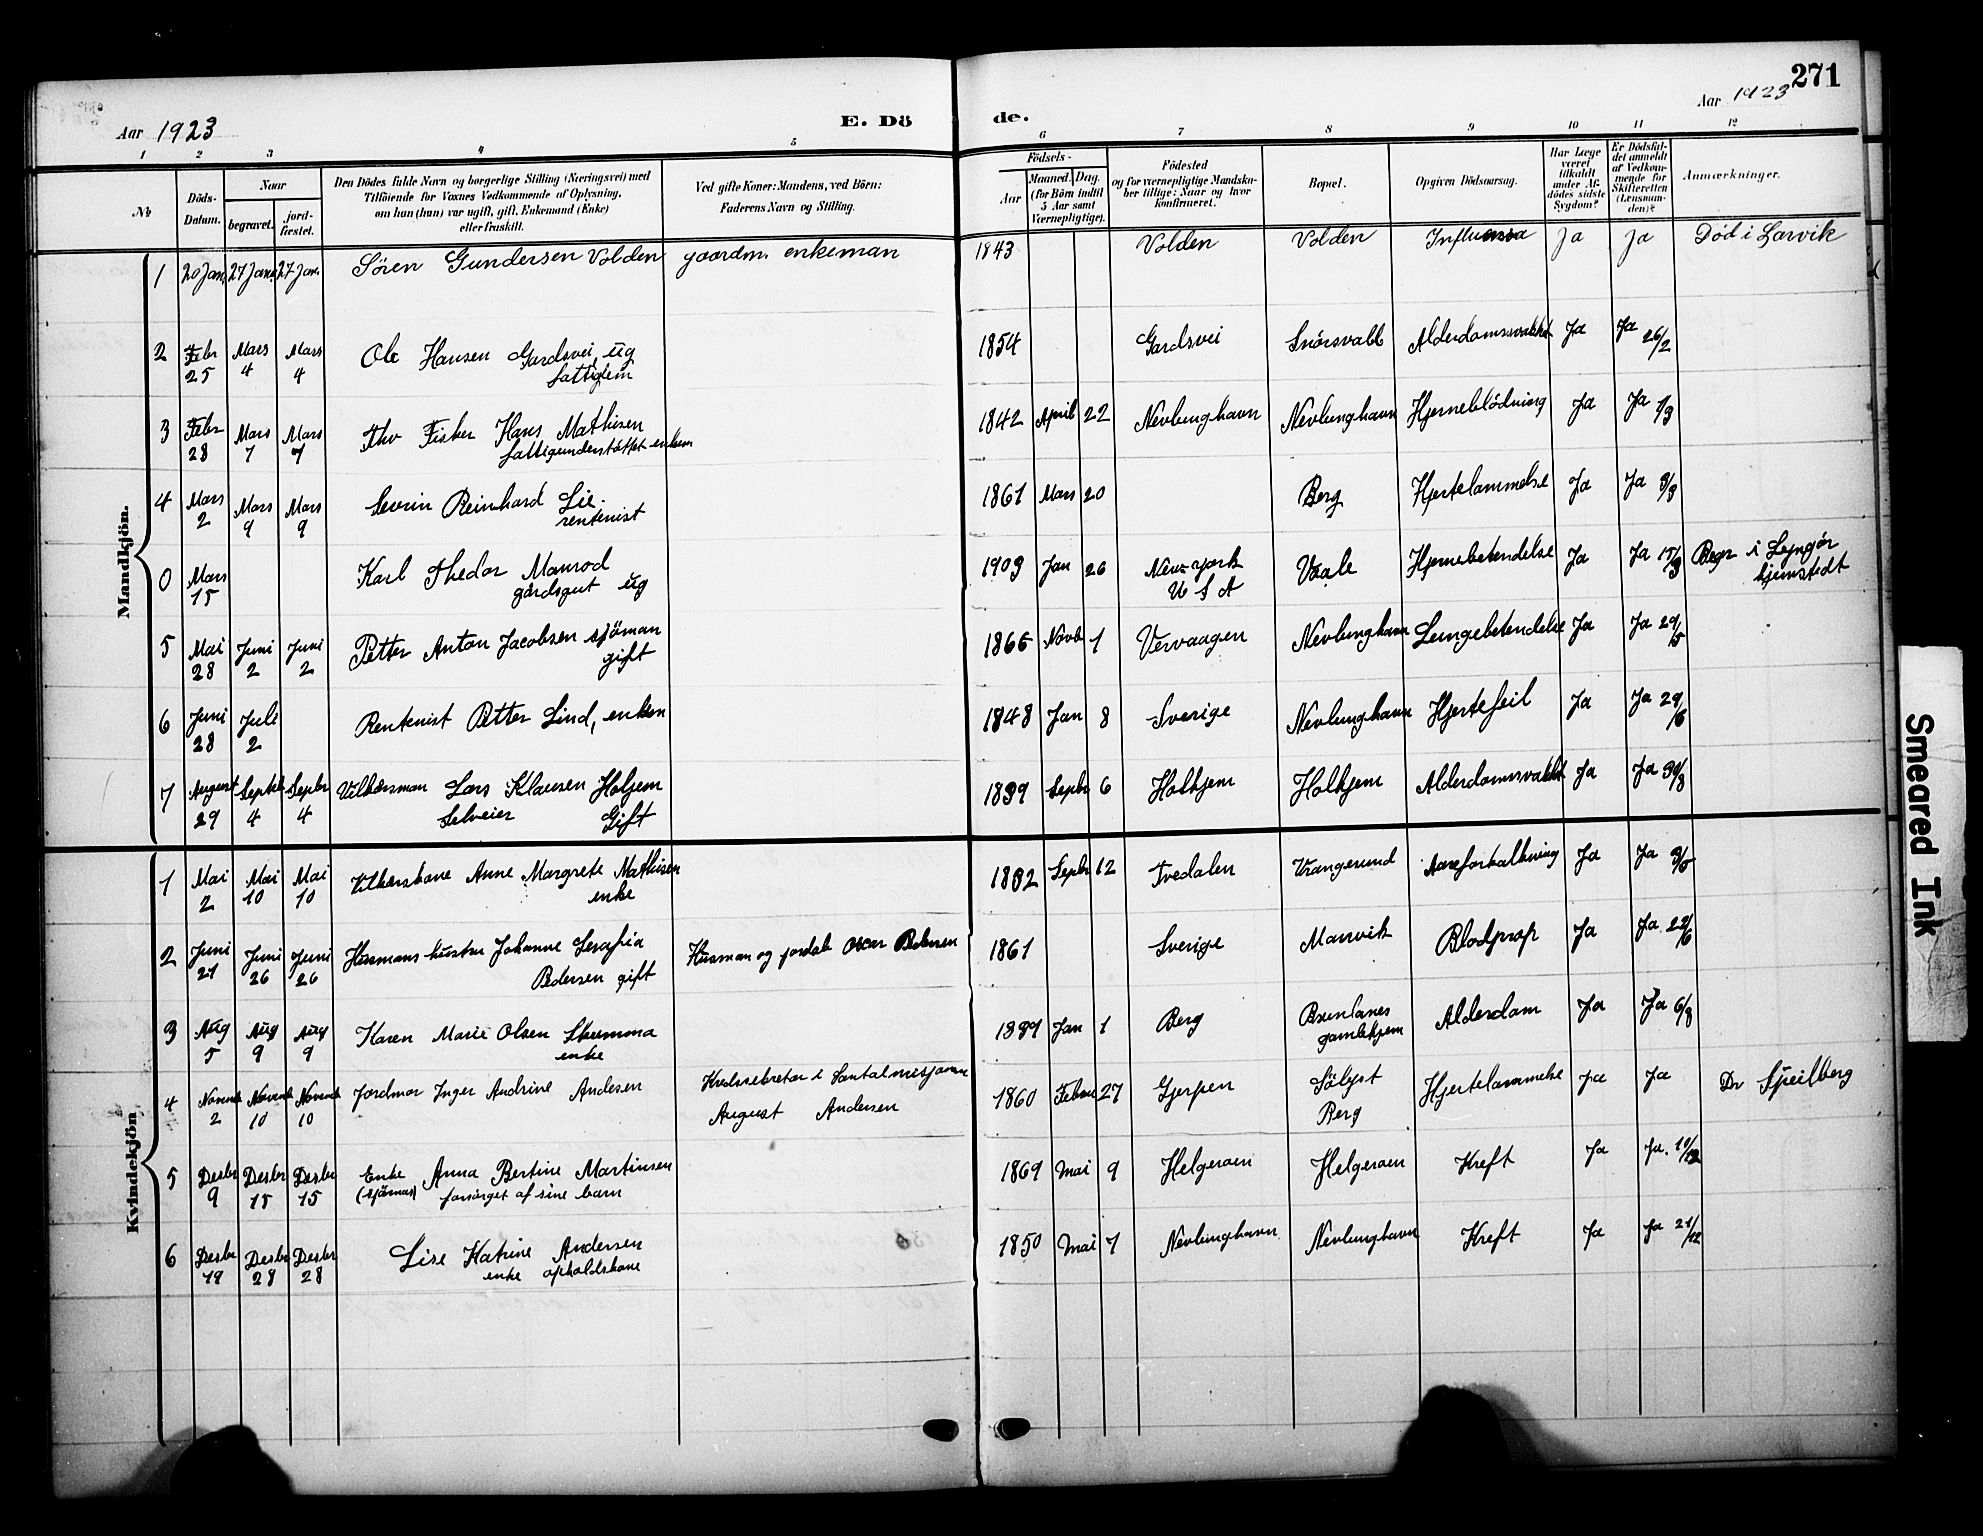 271
Aar 1923
E. Dö
de.
Aar 1923
1 2 3 4 5 6 7 8 9 10 11 12
No
Döds-Datum.
Naar
begravet.
jord-fæstet.
Den Dödes fulde Navn og borgerlige Stilling (Næringsvei) med
Tilföiende for Voxnes Vedkommende af Oplysning,
om han (hun) var ugift, gift, Enkemand (Enke)
eller fraskilt.
Ved gifte Koner: Mandens, ved Börn:
Faderens Navn og Stilling.
Födsels-
Aar
Maaned. Dag.
(for Börn indtil
5 Aar samt
Værnepligtige).
Födested
og for værnepligtige Mandska-
ber tillige: Naar og hvor
konfirmeret.
Bopæl.
Opgiven Dödsaarsag.
Har Læge
været
tilkaldt
under Af-
dödes sidste
Sygdom?
Er Dödsfal-
det anmeldt
af Vedkom-
mende for
Skifteretten
(Lensman-
den)?
Anmærkninger.
Mandkjön.
1 20 Jan. 27 Jan. 27 Jan. Sören Gundersen Volden gaardm. enkeman 1843 Volden Volden Influensa Ja Ja Död i Larvik
2 Febr 25 Mars 4 Mars 4 Ole Hansen Gardsvei, ug 1854 Gardsvei Alderdomssvakht Ja Ja 26/2
fattiglem
3 Febr 28 Mars 7 Mars 7 Fhv Fisker Hans Mathisen 1842 April 22 Nevlunghavn Nevlunghavn Hjerneblödning Ja Ja 1/3
fattigunderstöttet enkem
4 Mars 2 Mars 9 Mars 9 Severin Reinhard Lie. 1861 Mars 20 Berg Hjertelammelse Ja Ja 3/3
rentenist
0 Mars 15 Karl Thedor Manrod 1903 Jan 26 New-york Vaale Hjernebetendelse Ja Ja 15/3 Begr i Lyngör
gardsgut ug U S A hjemstedt
5 Mai 28 Juni 2 Juni 2 Petter Anton Jacobsen sjöman 1865 Novb 1 Vervaagen Nevlunghavn Lungebetendelse Ja Ja 29/5
gift
6 Juni 28 Juli 2 Rentenist Petter Lind, enkem 1848 Jan 8 Sverige Nevlunghavn Hjertefeil Ja Ja 29/6
7 August 29 Septbr 4 Septbr 4 Vilkårsman Lars Klausen Holjem 1839 Septbr 6 Holkjem Holkjem Alderdomssvakht Ja Ja 30/8
Selveier Gift
Kvindekjön
1 Mai 2 Mai 10 Mai 10 Vilkårskone Anne Margrete Mathisen 1832 Septbr 12 Tvedalen Vrangesund Aareforkalkning Ja Ja 3/5
enke
2 Juni 21 Juni 26 Juni 26 Husmans hustru Johanne Serafia Husman og jordab Oscar Pedersen 1861 Sverige Manvik Blodprop Ja Ja 22/6
Pedersen gift
3 Aug 5 Aug 9 Aug 9 Karen Marie Olsen Skumma 1837 Jan 1 Berg Brunlanes Alderdom Ja Ja 6/8
enke gamlehjem
4 Novemb 2 Novemb 10 Novemb 10 Jordmor Inger Andrine Andesen Kredssekretær i Santalmisjonen 1860 Febru 27 Gjerpen Sölyst Hjertelammelse ja Ja Dr Speilberg
August Andersen Berg
5 Desbr 9 Desbr 15 Desbr 15 Enke Anna Bertine Martinsen 1869 Mai 9 Helgeroen Helgeroen Kreft Ja Ja. 10/12
(sjömas) forsörget af sine barn
6 Desbr 19 Desbr 28 Desbr 28 Lise Katrine Andersen 1850 Mai 7 Nevlunghavn Nevlunghavn Kreft Ja Ja 21/12
enke opholdskone
Smeared Ink